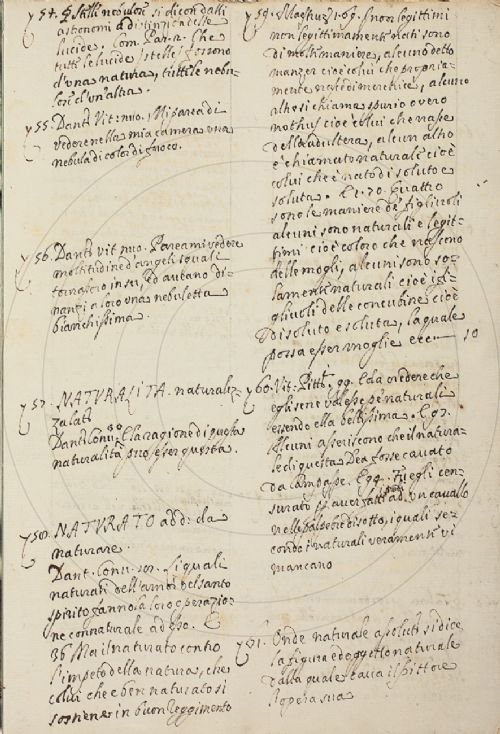 54. stelle si dicon dalli
astronomi
lucide, Com. Par. 2. Che
tutte le lucide stelle fossono
d'una natura, tutte le nebu-
lose d'un'altra.
55. Dant. Vit. nuo. Mi parea di
vedere nella mia camera una
nebula di color di fuoco.
56. Dant. vit. nuo. Pareami vedere
moltitudine d'angeli i quali
tornasero in su, ed aveano di-
nanzi a loro una nebuletta
bianchissima.
57. NATURALITÀ. naturali-
Dant. Conv. 80. E la ragione di questa
naturalità può esser questa.
58. NATURATO add: da
naturare.
Dant. Conv. 101. I quali
naturati dell'
spirito fanno la loro operazio-
ne connaturale ad esso.
36 Ma il naturato contro
l'impeto della natura, che
colui che è ben naturato si
sostiene in buon reggimento
59. Maestruz. 1. 69. I non legittimi
non legittimamente nati sono
di molte maniere, alcuno detto
manzer cioè colui che propria-
mente nasce di meretrice, alcuno
altresi chiama spurio overo
nothus cioè colui che nasce
della adultera, alcun altro
è chiamato naturale cioè
colui che è nato di soluto e
soluta. E 1. 70. Quattro
sono le maniere de' figliuoli
alcuni sono naturali e legit-
timi cioè coloro che nascono
delle mogli, alcuni sono so-
lamente naturali cioè i fi-
gliuoli delle concubine cioè
di soluto e soluta, la quale
possa esser moglie ecc. 10
60. Vit. Pitt. 99. E da credere che
egli se ne valesse pe' naturali
essendo ella bellissima. E 93.
Alcuni asseriscono che il natura-
le di questa Dea fosse cavato
da Campaspe. E 99. Fu egli cen-
surato p. aver fatti ad un cavallo
nelle palpebre di sotto, i quali se-
condo i naturali veramente vi
mancano
61. Onde naturale assoluti si dice
la figura ed oggetto naturale
dalla quale cava il Pittore
l'opera sua